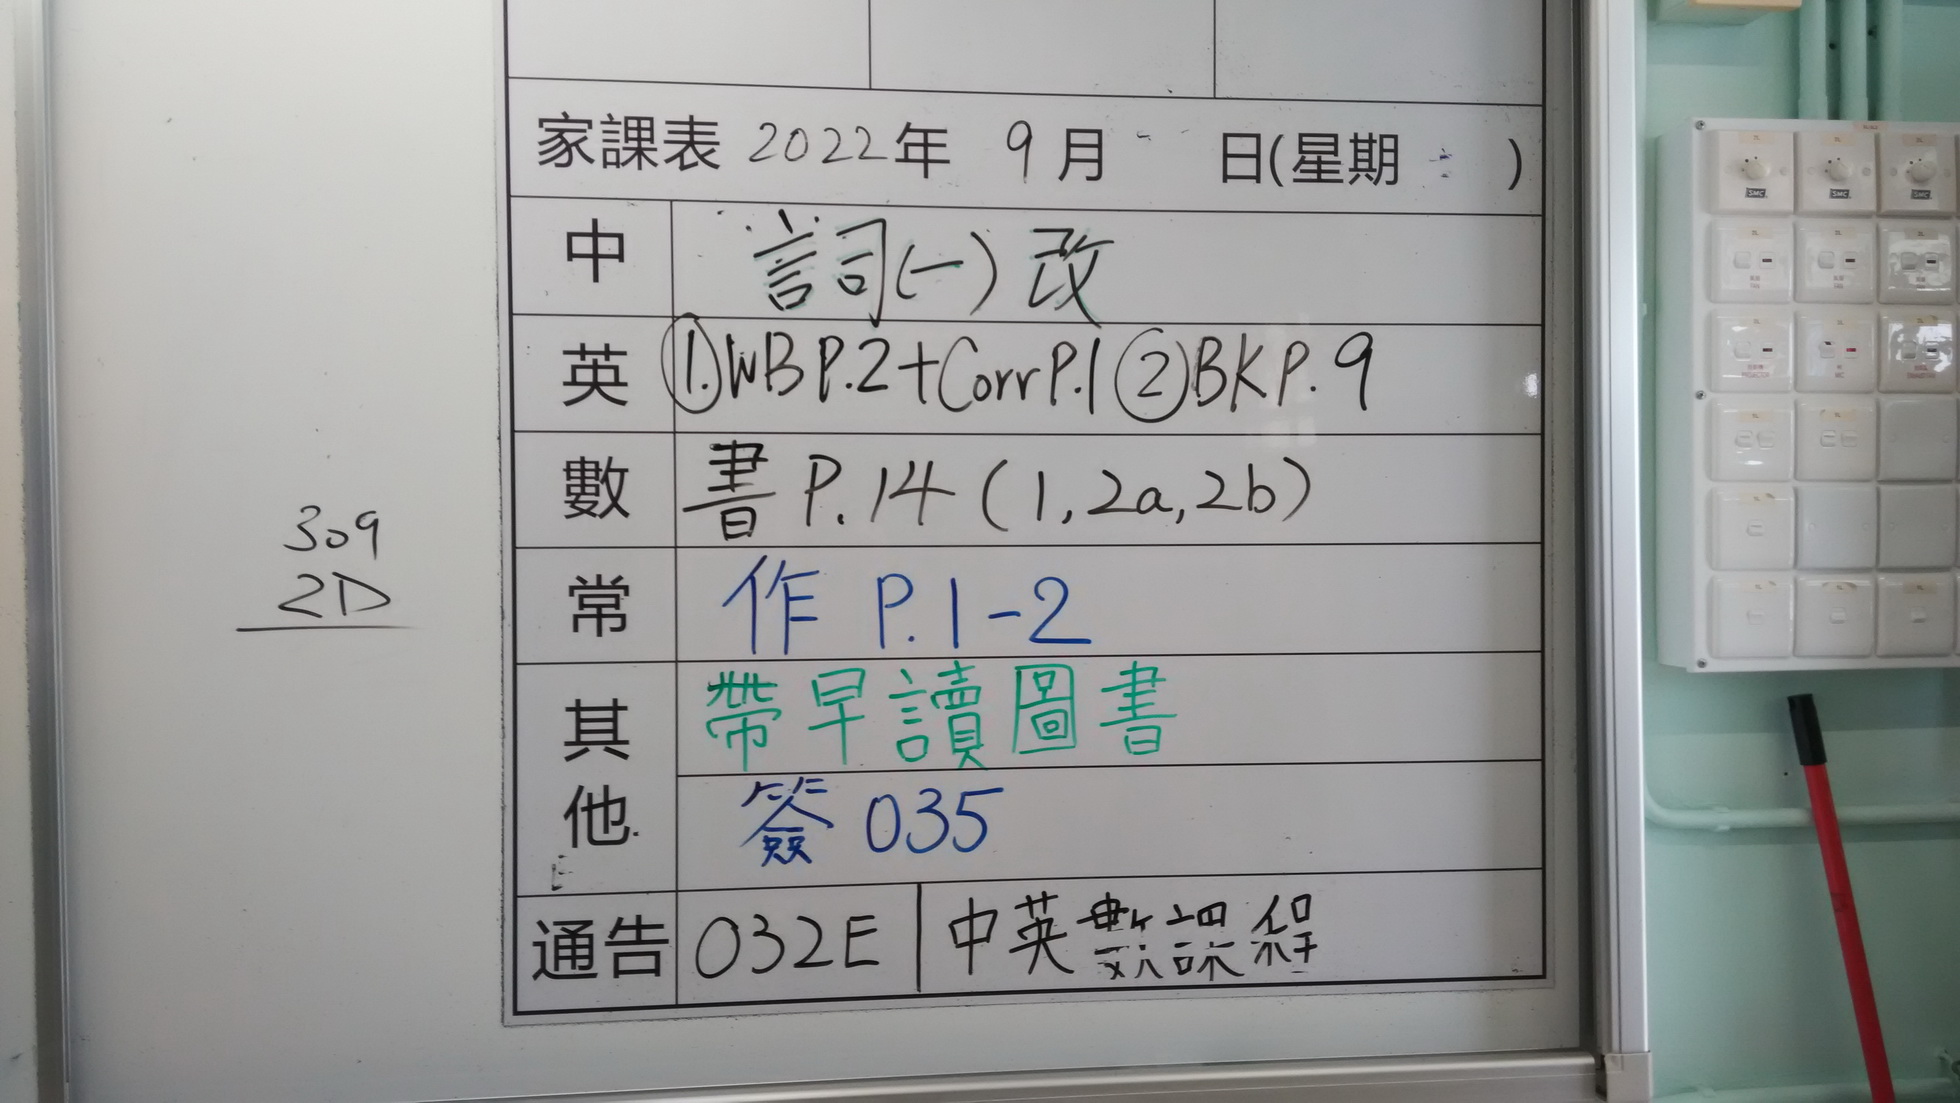 家課表 2022年 9月 日(星期 )
中 詞(一)改
英 ①.WB P.2+Corr P.1 ②BK P.9
數 書 P.14 (1, 2a, 2b)
常 作 P.1-2
其他 帶早讀圖書
簽 035
通告 032E 中英數課程
309
2D
SMC SMC SMC